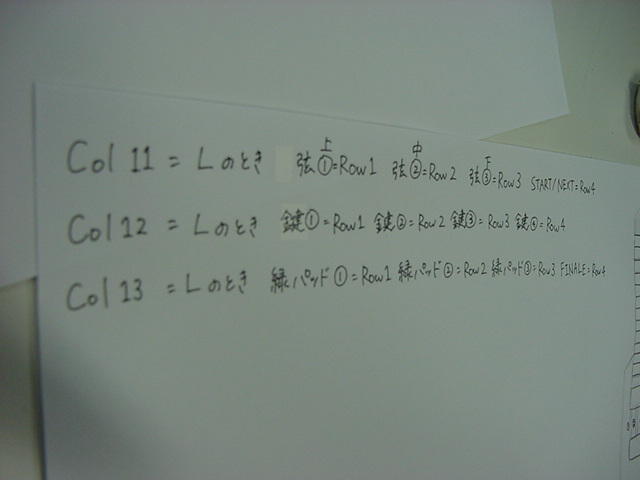 上 中 下
Col 11 = Lのとき 弦①=Row1 弦②=Row2 弦③=Row3 START/NEXT=Row4
Col 12 = Lのとき 鍵①=Row1 鍵②=Row2 鍵③=Row3 鍵④=Row4
Col 13 = Lのとき 緑パッド①=Row1 緑パッド②=Row2 緑パッド③=Row3 FINALE=Row4